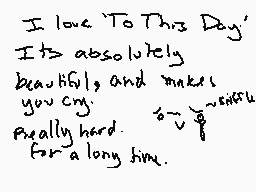 I love 'To This Day.'
Its absolutely
beautiful, and makes
you cry.
Really hard.
for a long time.